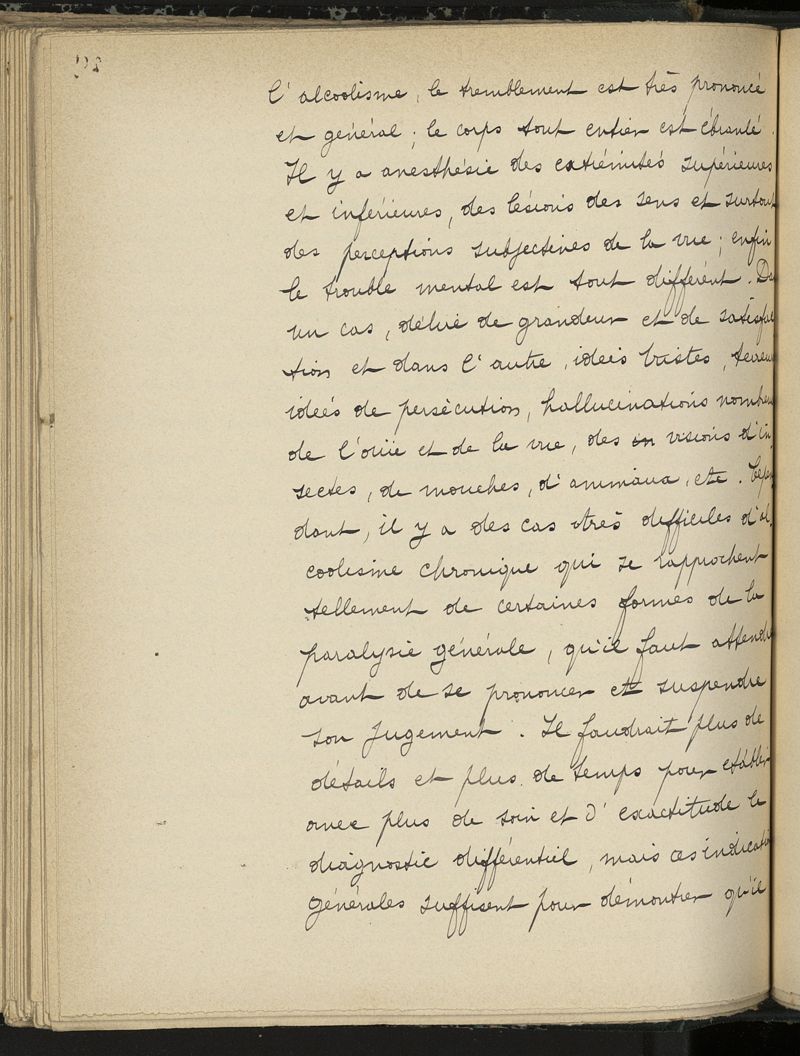 l'alcoolisme, le tremblement est très prononcé
et général ; le corps tout entier est ébranlé.
Il y a anesthésie des extrémités supérieures
et inférieures, des lésions des sens et surtout
des perceptions subjectives de la vue ; enfin
le trouble mental est tout différent. Da
un cas, délire de grandeur et de satisfac
tion et dans l'autre, idées tristes, terreu
idées de persécution, hallucinations nombreu
de l'ouïe et de la vue, des visions d'in
sectes, de mouches, d'animaux, etc. Cepen
dant, il y a des cas très difficiles d'al
coolisme chronique qui se rapprochent
tellement de certaines formes de la
paralysie générale, qu'il faut attendre
avant de se prononcer et suspendre
son jugement. Il faudrait plus de
détails et plus de temps pour établir
avec plus de soin et d'exactitude le
diagnostic différentiel, mais ces indicatio
générales suffisent pour démontrer qu'il